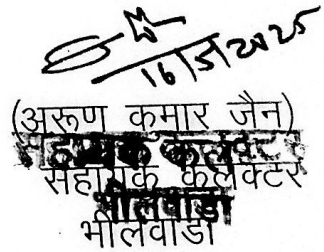 16/5/2025
(अरूण कमार जैन)
सहायक कलक्टर
सहायक कलेक्टर
भीलवाडा
भीलवाडा